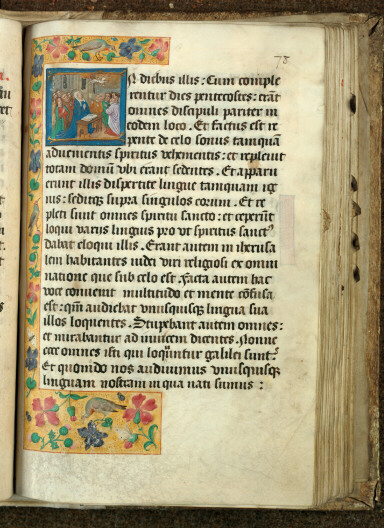 78
N diebus illis: Cum comple
rentur dies pentecostes: erāt
omnes discipuli pariter in
eodem loco. Et factus est re
pente de celo sonus tamquā
advenientis spiritus vehementis: et replevit
totam domū vbi erant sedentes. Et apparu
erunt illis dispertite lingue tamquam ig
nis: seditqꝫ supra singulos eorum. Et re
pleti sunt omnes spiritu sancto: et ceperūt
loqui varijs linguis pro vt spiritus sanctꝰ
dabat eloqui illis. Erant autem in iherusa
lem habitantes iudei viri religiosi ex omni
natione que sub celo est. Facta autem hac
voce convenit multitudo et mente cōfusa
est: qm̄ audiebat vnusquisqꝫ lingua sua
illos loquentes. Stupebant autem omnes:
et mirabantur ad invicem dicentes. Nonne
ecce omnes isti qui loquuntur galilei sunt?
Et quomō nos audivimus vnusquisqꝫ
linguam nostram in qua nati sumus: